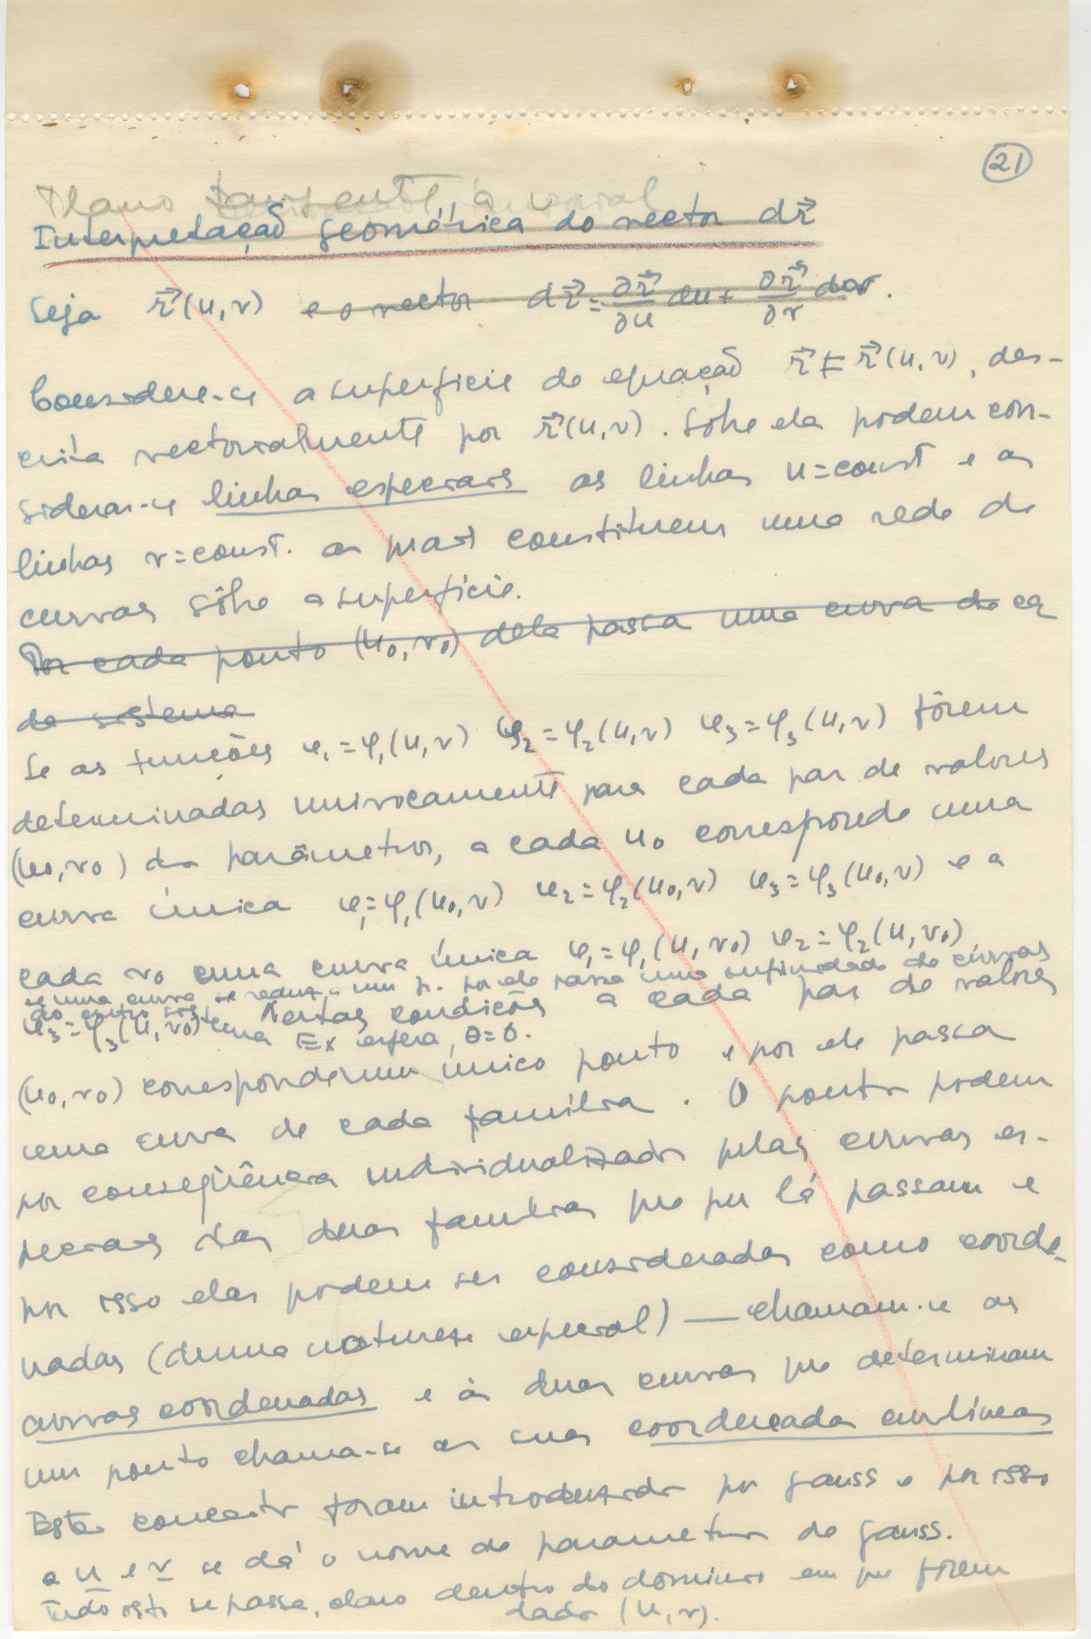 21
Plano tangente à normal
Interpretação geométrica do vector d𝑟⃗
Seja r⃗(u,v) e o vector dr⃗ = ∂r⃗/∂u du + ∂r⃗/∂v dv.
Considere-se a superfície de equação r⃗ = r⃗(u,v), des-
crita vectorialmente por r⃗(u,v). Sôbre ela podem con-
siderar-se linhas especiais as linhas u=const e as
linhas v=const. as quais constituem uma rede de
curvas sôbre a superfície.
Por cada ponto (u₀,v₀) dela passa uma curva de eq
do sistema
Se as funções φ₁=φ₁(u,v) φ₂=φ₂(u,v) φ₃=φ₃(u,v) fôrem
determinadas univocamente para cada par de valores
(u₀,v₀) dos parâmetros, a cada u₀ corresponde uma
curva única φ₁=φ₁(u₀,v) φ₂=φ₂(u₀,v) φ₃=φ₃(u₀,v) e a
cada v₀ uma curva única φ₁=φ₁(u,v₀) φ₂=φ₂(u,v₀)
se uma curva se reduz a um p. por ele passa uma infinidade de curvas
do outro sistema Ex esfera, θ=0.
φ₃=φ₃(u,v₀) Nestas condições a cada par de valores
(u₀,v₀) corresponde um único ponto e por ele passa
uma curva de cada família. O ponto podem
por conseqüência individualizado pelas curvas es-
peciais das duas famílias que por lá passam e
por isso elas podem ser consideradas como coorde-
nadas (duma natureza especial) — chamam-se as
curvas coordenadas e às duas curvas que determinam
um ponto chama-se as suas coordenadas curvilíneas
Estes conceitos foram introduzidos por Gauss e por isso
a u e v se dá o nome de parâmetros de Gauss.
Tudo isto se passa, claro dentro do domínio em que forem
dados (u,v).